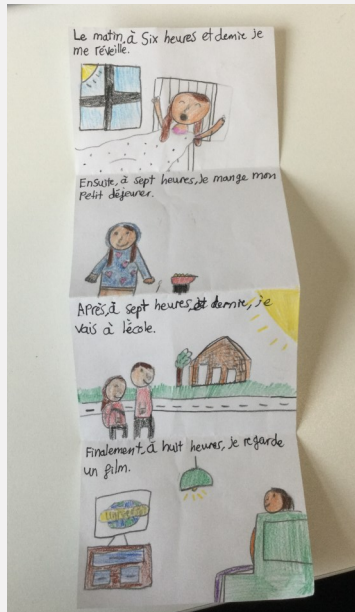 Le matin, à Six heures et demie je
me réveille.
Ensuite, à sept heures, Je mange mon
Petit déjeuner.
APrès, à sept heures et demie, je
vais à l'école.
Finalement, à huit heures, je regarde
un film.